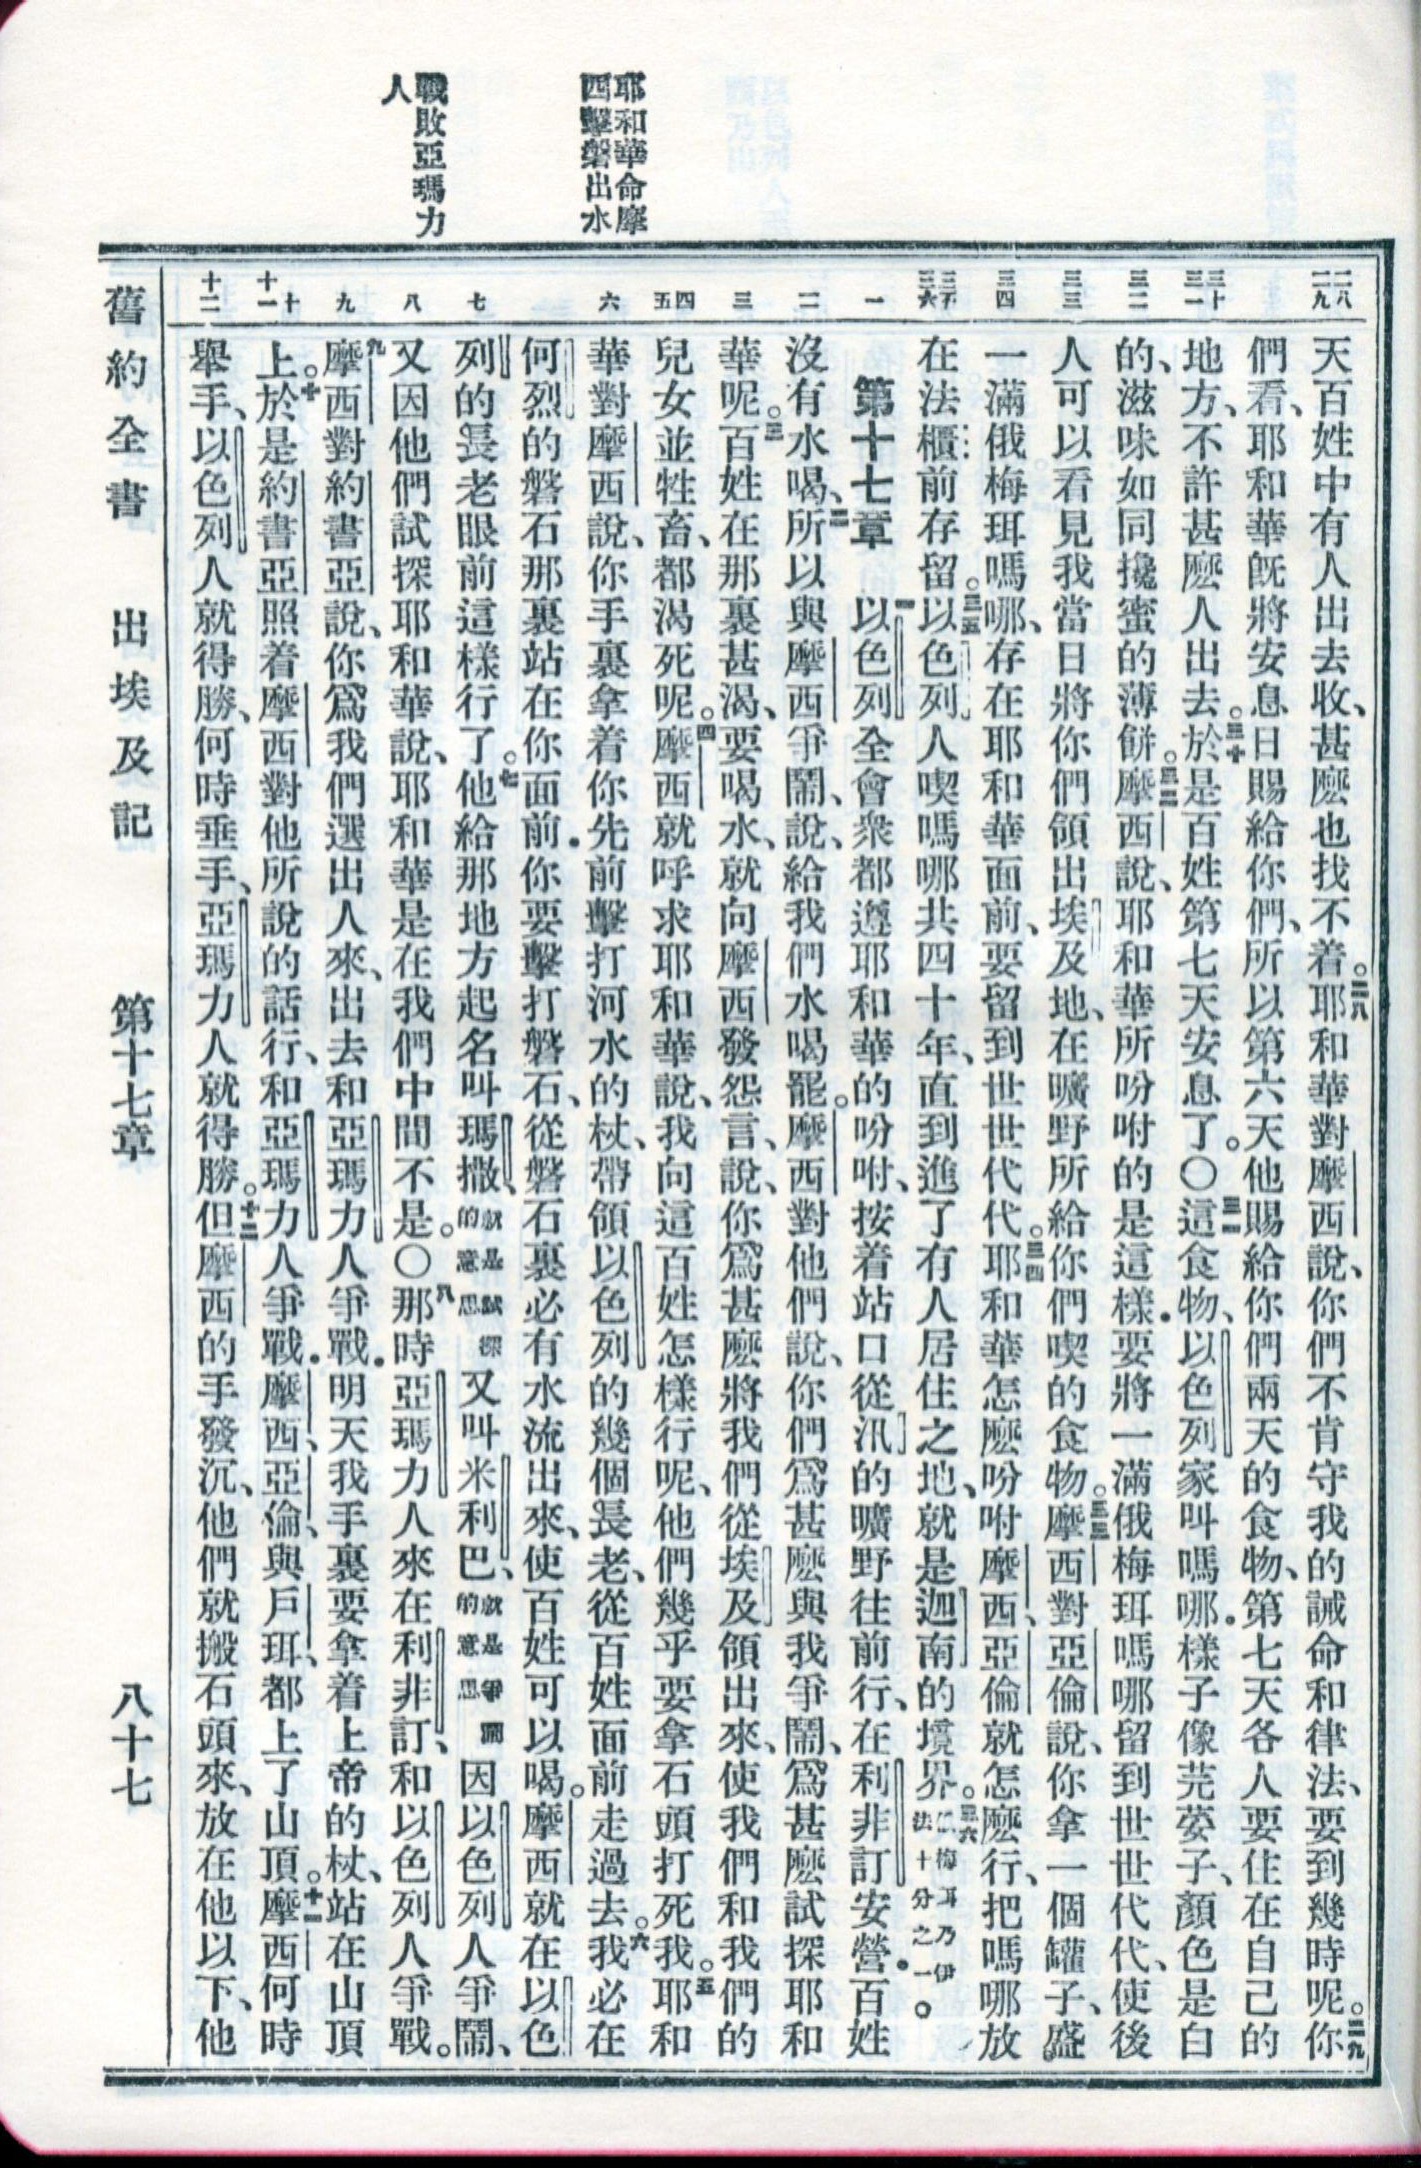 耶和華命摩
西擊磐出水
戰敗亞瑪力
人
二八 二九
天百姓中有人出去收、甚麽也找不着。二八耶和華對摩西說、你們不肯守我的誡命和律法、要到幾時呢。二九你
們看、耶和華旣將安息日賜給你們、所以第六天他賜給你們兩天的食物、第七天各人要住在自己的
三十 三一
地方、不許甚麽人出去。三十於是百姓第七天安息了。〇三一這食物、以色列家叫嗎哪．樣子像芫荽子、顏色是白
三二
的、滋味如同攙蜜的薄餅。三二摩西說、耶和華所吩咐的是這樣．要將一滿俄梅珥嗎哪留到世世代代、使後
三三
人可以看見我當日將你們領出埃及地、在曠野所給你們喫的食物。三三摩西對亞倫說、你拿一個罐子、盛
三四
一滿俄梅珥嗎哪、存在耶和華面前、要留到世世代代。三四耶和華怎麽吩咐摩西、亞倫就怎麽行、把嗎哪放
三五 三六
在法櫃前存留。三五以色列人喫嗎哪共四十年、直到進了有人居住之地、就是迦南的境界。三六俄梅珥乃伊法十分之一。
一
第十七章 一以色列全會衆都遵耶和華的吩咐、按着站口從汛的曠野往前行、在利非訂安營．百姓
二
沒有水喝、二所以與摩西爭鬧、說、給我們水喝罷。摩西對他們說、你們爲甚麽與我爭鬧、爲甚麽試探耶和
三
華呢。三百姓在那裏甚渴、要喝水、就向摩西發怨言、說、你爲甚麽將我們從埃及領出來、使我們和我們的
四 五
兒女並牲畜、都渴死呢。四摩西就呼求耶和華說、我向這百姓怎樣行呢、他們幾乎要拿石頭打死我。五耶和
六
華對摩西說、你手裏拿着你先前擊打河水的杖、帶領以色列的幾個長老、從百姓面前走過去。六我必在
何烈的磐石那裏站在你面前．你要擊打磐石、從磐石裏必有水流出來、使百姓可以喝。摩西就在以色
七
列的長老眼前這樣行了。七他給那地方起名叫瑪撒、就是試探的意思又叫米利巴、就是爭鬧的意思因以色列人爭鬧、
八
又因他們試探耶和華說、耶和華是在我們中間不是。〇八那時亞瑪力人來在利非訂、和以色列人爭戰。
九
九摩西對約書亞說、你爲我們選出人來、出去和亞瑪力人爭戰．明天我手裏要拿着上帝的杖、站在山頂
十 十一
上。十於是約書亞照着摩西對他所說的話行、和亞瑪力人爭戰．摩西、亞倫、與戶珥、都上了山頂。十一摩西何時
十二
舉手、以色列人就得勝、何時垂手、亞瑪力人就得勝。十二但摩西的手發沉、他們就搬石頭來、放在他以下、他
舊約全書 出埃及記 第十七章 八十七